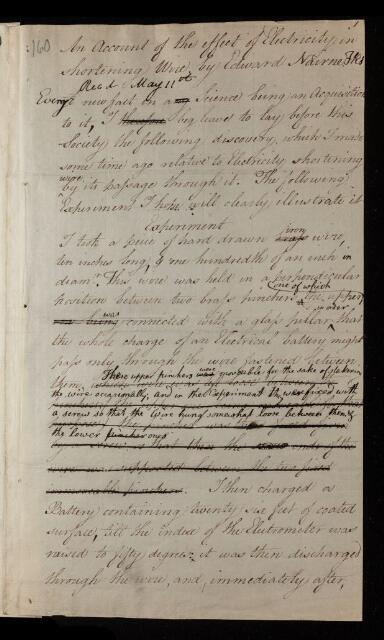 160
1
An Account of the effect of Electricity in
shortening Wire by Edward Nairne FRS
Recd May 11
Every new fact in a Science being an Acquisition
to it, I beg leave to lay before this
Society the following discovery, which I made
some time ago relative to Electricity shortening
wire
by its passage through it. The following
Experiment I hope will clearly illustrate it
Experiment
I took a piece of hard drawn iron brass wire,
ten inches long, & one hundredth of an inch in
diam. This wire was held in a perpendicular
one of which
position between two brass pinchers the upper
in order
was connected with a glass pillar, that
the whole charge of an Electrical battery might
pass only through the wire fastened between
them
These upper pinchers were moveable for the sake of
the wire occasionally, and in this Experiment was fixed with
a screw so that the wire hung somewhat loose between them &
the lower pincher ones
I then charged a
Battery containing twenty six feet of coated
surface, till the index of the Electrometer was
raised to fifty degrees: it was then discharged
through the wire, and, immediately after,